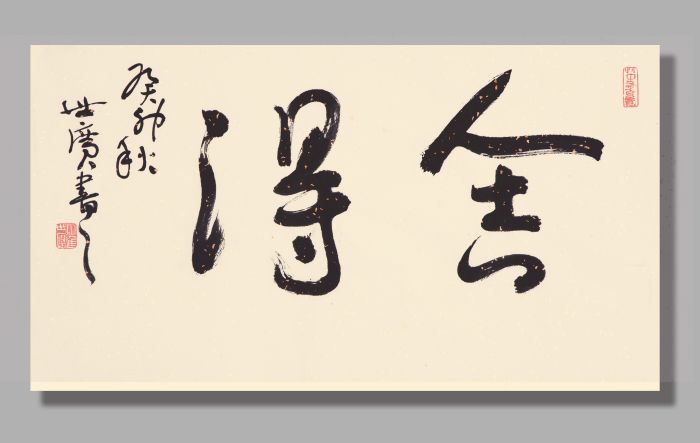 舍得
癸卯秋
世廣書